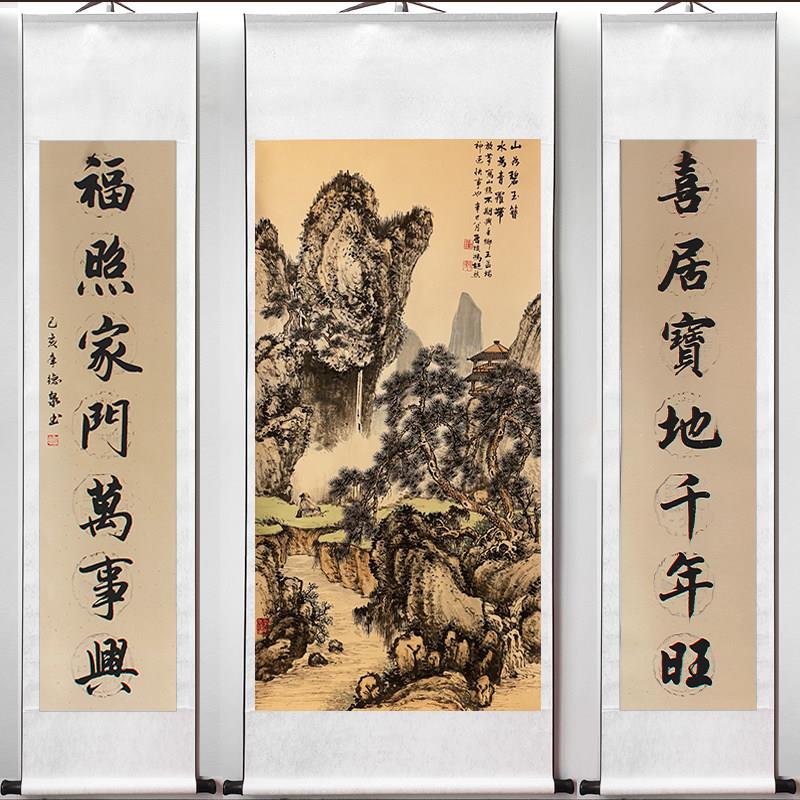 喜居寶地千年旺
山為碧玉簪
水為青羅帶
福照家門萬事興
己亥年德泉书